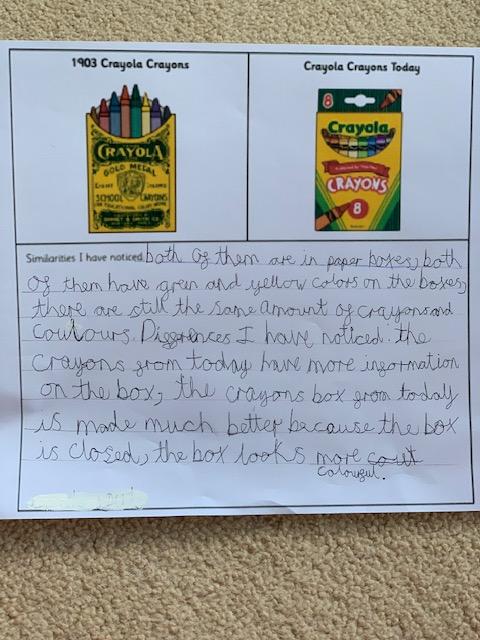 1903 Crayola Crayons
Crayola Crayons Today
CRAYOLA
GOLD MEDAL
SCHOOL CRAYONS
8
Crayola
CRAYONS
8
Similarities I have noticed both of them are in paper boxes, both
of them have gren and yellow colors on the boxes,
there are still the same amount of crayons and
coulours. Diffrences I have noticed. the
crayons from today have more information
on the box, the crayons box from today
is made much better because the box
is closed, the box looks more cout
colourful.